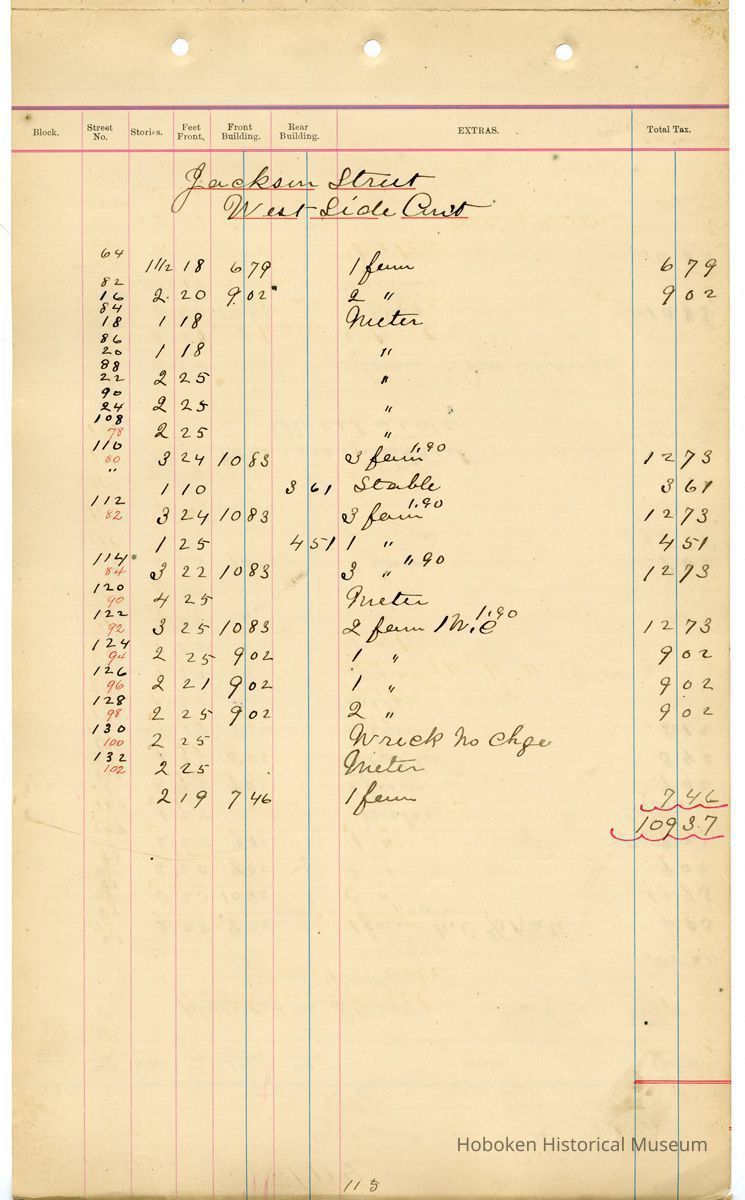 Block. Street No. Stories. Feet Front, Front Building. Rear Building. EXTRAS. Total Tax.
Jackson Street
West Side Con't
64
1 1/2 18 6 79 1 fam 6 79
82
16 2 20 9 02 2 " 9 02
84
18 1 18 Meter
86
20 1 18 "
88
22 2 25 "
90
24 2 25 "
108
78 2 25 "
110
80 3 24 10 83 3 fam 1.90 12 73
" 1 10 3 61 Stable 3 61
112
82 3 24 10 83 3 fam 1.90 12 73
1 25 4 51 1 " 4 51
114
84 3 22 10 83 3 " " 90 12 73
120
90 4 25 Meter
122
92 3 25 10 83 2 fam 1 W.C 1.90 12 73
124
94 2 25 9 02 1 " 9 02
126
96 2 21 9 02 1 " 9 02
128
98 2 25 9 02 2 " 9 02
130
100 2 25 Wreck No Chge
132
102 2 25 Meter
2 19 7 46 1 fam 7 46
109 3.7
113
Hoboken Historical Museum